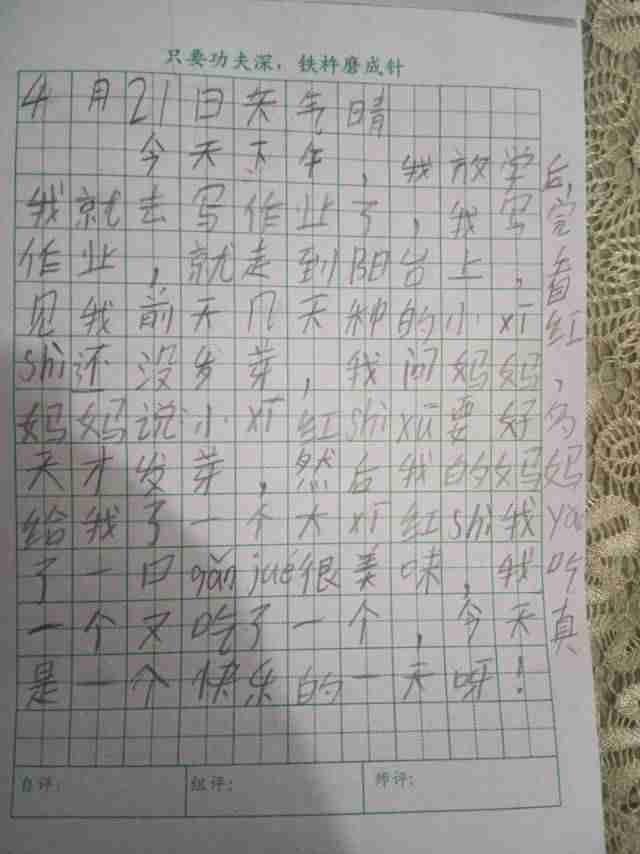 只要功夫深，铁杵磨成针
4月21日天气晴
今天下午，我放学后，
我就去写作业了，我写完
作业，就走到阳台上，看
见我前天几天种的小xī红
shì还没发芽，我问妈妈，
妈妈说小xī红shì xū要好多
天才发芽，然后我的妈妈
给我了一个大xī红shì我yǎo
了一口gǎn jué很美味，我吃
一个又吃了一个，今天真
是一个快乐的一天呀！
自评：
组评：
师评：